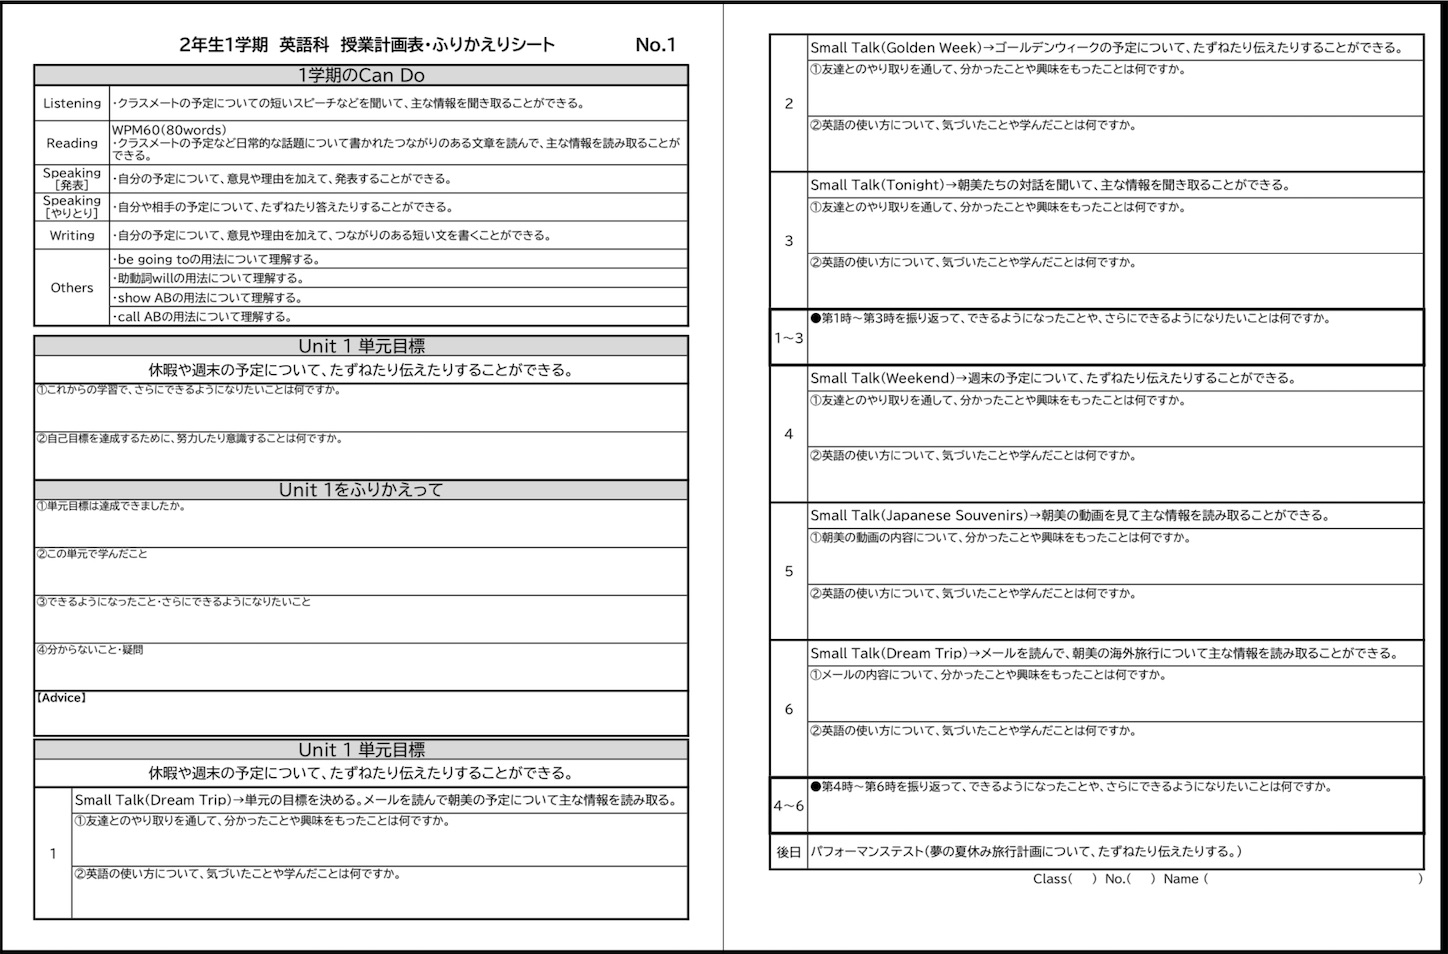 2年生1学期 英語科 授業計画表・ふりかえりシート No.1
1学期のCan Do
Listening ・クラスメートの予定についての短いスピーチなどを聞いて、主な情報を聞き取ることができる。
Reading
WPM60(80words)
・クラスメートの予定など日常的な話題について書かれたつながりのある文章を読んで、主な情報を読み取ることが
できる。
Speaking
[発表]
・自分の予定について、意見や理由を加えて、発表することができる。
Speaking
[やりとり]
・自分や相手の予定について、たずねたり答えたりすることができる。
Writing ・自分の予定について、意見や理由を加えて、つながりのある短い文を書くことができる。
Others
・be going toの用法について理解する。
・助動詞willの用法について理解する。
・show ABの用法について理解する。
・call ABの用法について理解する。
Unit 1 単元目標
休暇や週末の予定について、たずねたり伝えたりすることができる。
①これからの学習で、さらにできるようになりたいことは何ですか。
②自己目標を達成するために、努力したり意識することは何ですか。
Unit 1をふりかえって
①単元目標は達成できましたか。
②この単元で学んだこと
③できるようになったこと・さらにできるようになりたいこと
④分からないこと・疑問
【Advice】
Unit 1 単元目標
休暇や週末の予定について、たずねたり伝えたりすることができる。
1
Small Talk(Dream Trip)→単元の目標を決める。メールを読んで朝美の予定について主な情報を読み取る。
①友達とのやり取りを通して、分かったことや興味をもったことは何ですか。
②英語の使い方について、気づいたことや学んだことは何ですか。
2
Small Talk(Golden Week)→ゴールデンウィークの予定について、たずねたり伝えたりすることができる。
①友達とのやり取りを通して、分かったことや興味をもったことは何ですか。
②英語の使い方について、気づいたことや学んだことは何ですか。
3
Small Talk(Tonight)→朝美たちの対話を聞いて、主な情報を聞き取ることができる。
①友達とのやり取りを通して、分かったことや興味をもったことは何ですか。
②英語の使い方について、気づいたことや学んだことは何ですか。
1～3
●第1時～第3時を振り返って、できるようになったことや、さらにできるようになりたいことは何ですか。
4
Small Talk(Weekend)→週末の予定について、たずねたり伝えたりすることができる。
①友達とのやり取りを通して、分かったことや興味をもったことは何ですか。
②英語の使い方について、気づいたことや学んだことは何ですか。
5
Small Talk(Japanese Souvenirs)→朝美の動画を見て主な情報を読み取ることができる。
①朝美の動画の内容について、分かったことや興味をもったことは何ですか。
②英語の使い方について、気づいたことや学んだことは何ですか。
6
Small Talk(Dream Trip)→メールを読んで、朝美の海外旅行について主な情報を読み取ることができる。
①メールの内容について、分かったことや興味をもったことは何ですか。
②英語の使い方について、気づいたことや学んだことは何ですか。
4～6
●第4時～第6時を振り返って、できるようになったことや、さらにできるようになりたいことは何ですか。
後日 パフォーマンステスト(夢の夏休み旅行計画について、たずねたり伝えたりする。)
Class( ) No.( ) Name ( )